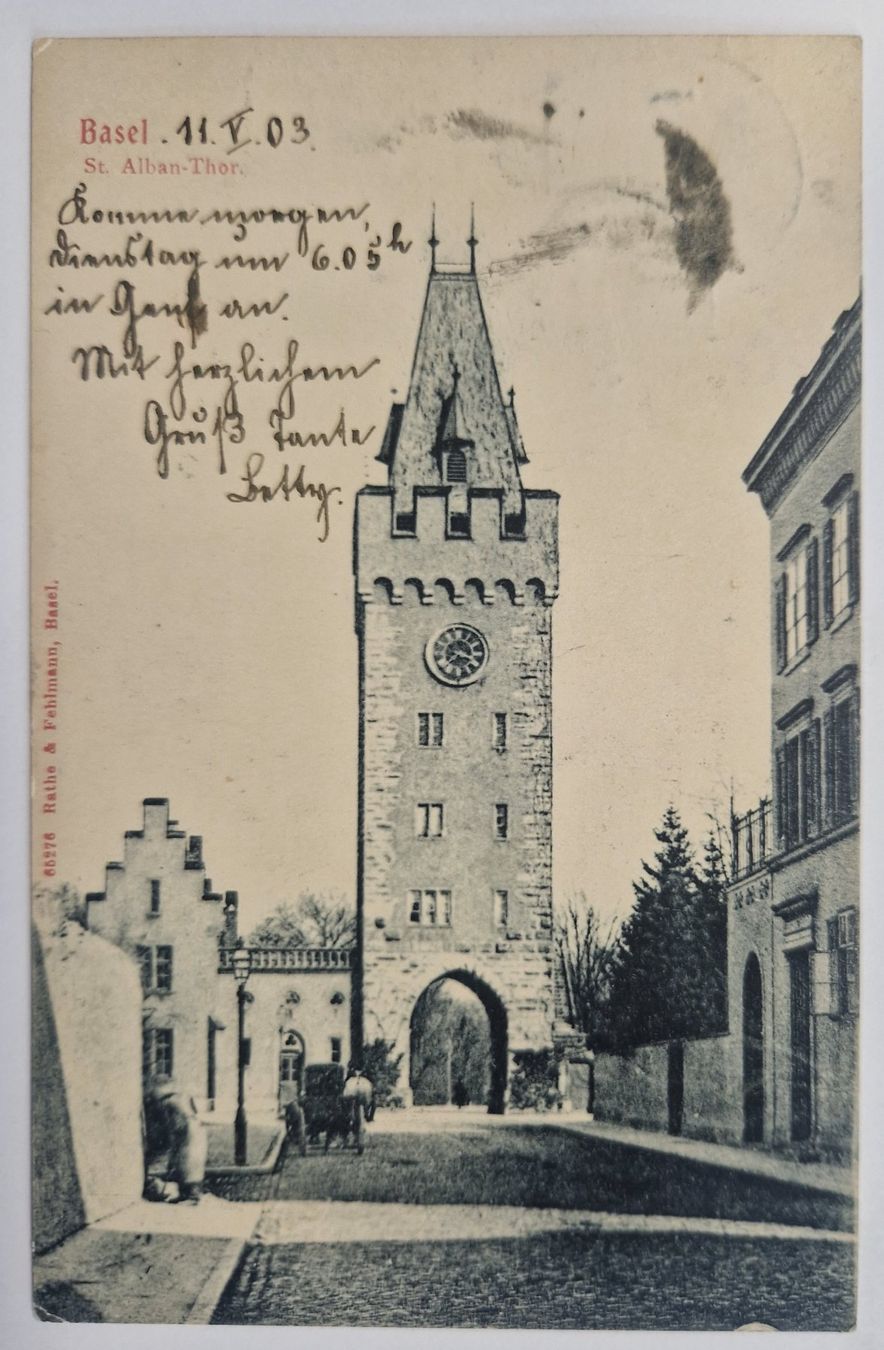 Basel. 11.V.03.
St. Alban-Thor.
Komme morgen,
Dienstag um 6.05h
in Genf an.
Mit herzlichem
Gruß Tante
Betty.
65276 Rathe & Fehlmann, Basel.